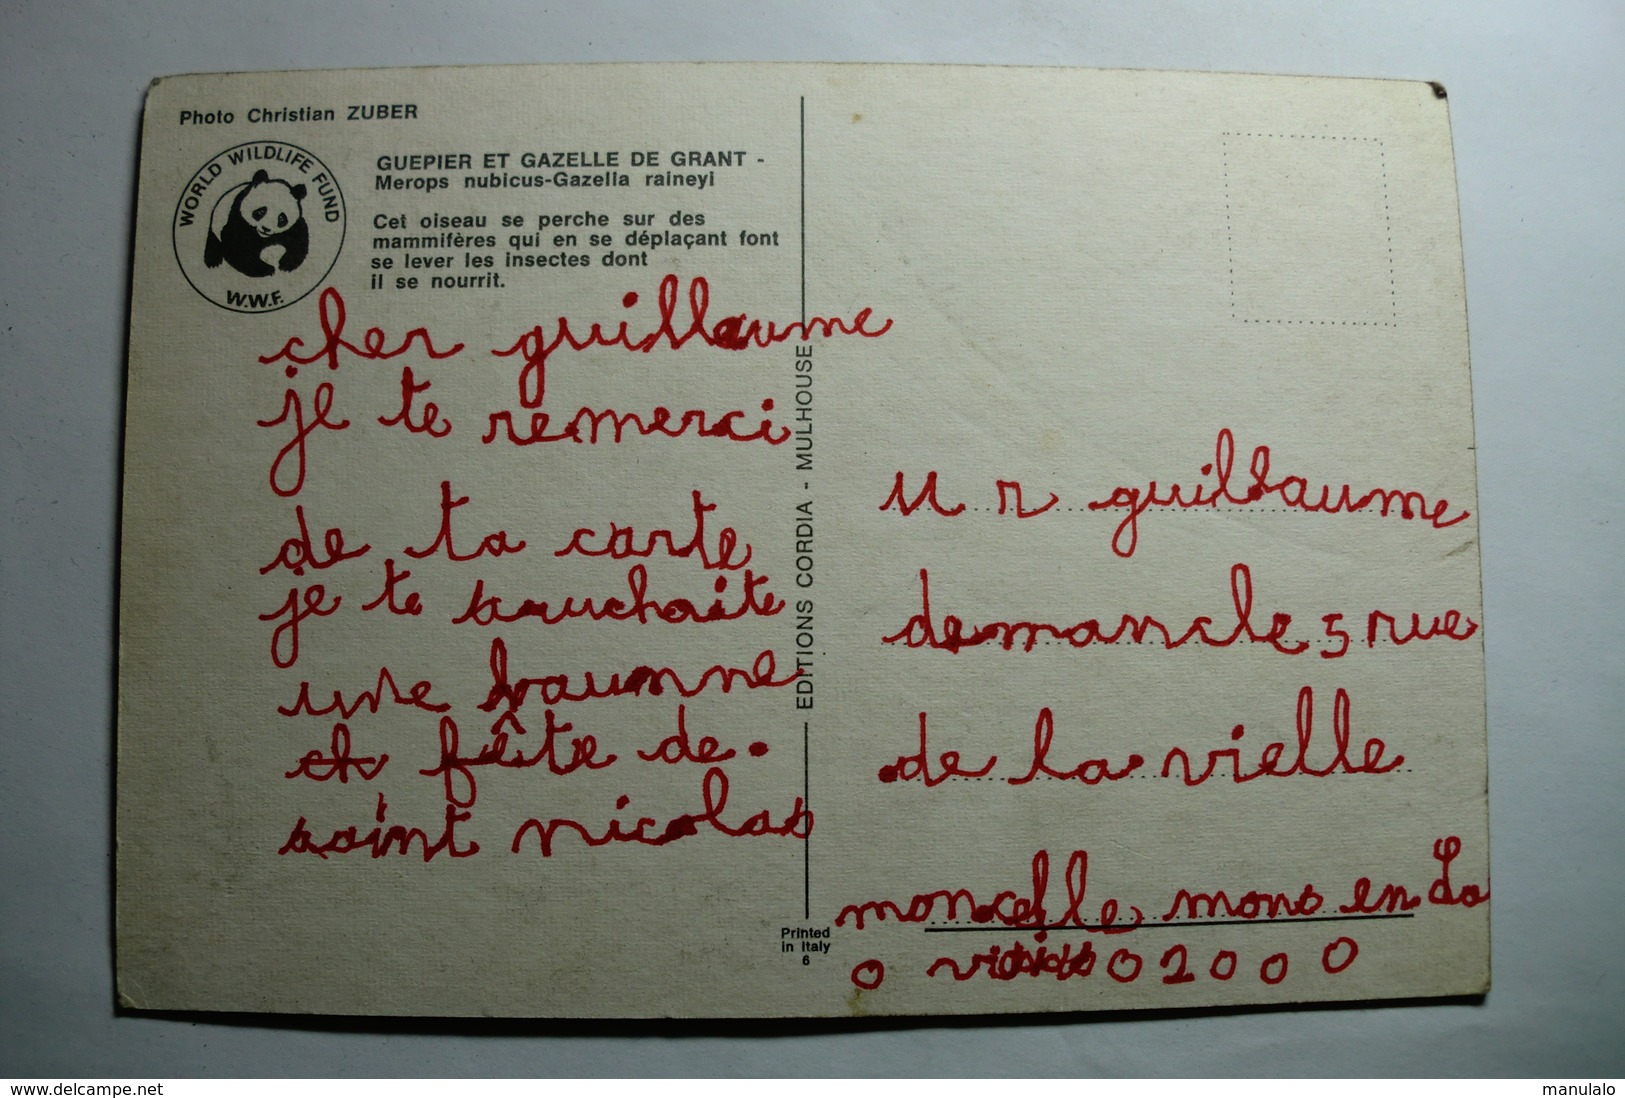 Photo Christian ZUBER
WORLD WILDLIFE FUND
W.W.F.
GUEPIER ET GAZELLE DE GRANT -
Merops nubicus-Gazella raineyi
Cet oiseau se perche sur des
mammifères qui en se déplaçant font
se lever les insectes dont
il se nourrit.
cher guillaume
je te remerci
de ta carte
je te souchaite
une baunne
fête de
saint nicolas
EDITIONS CORDIA - MULHOUSE
Printed
in Italy
6
M r guillaume
demancle 5 rue
de la vielle
moncelle mons en La
o 02000
www.delcampe.net
manulalo